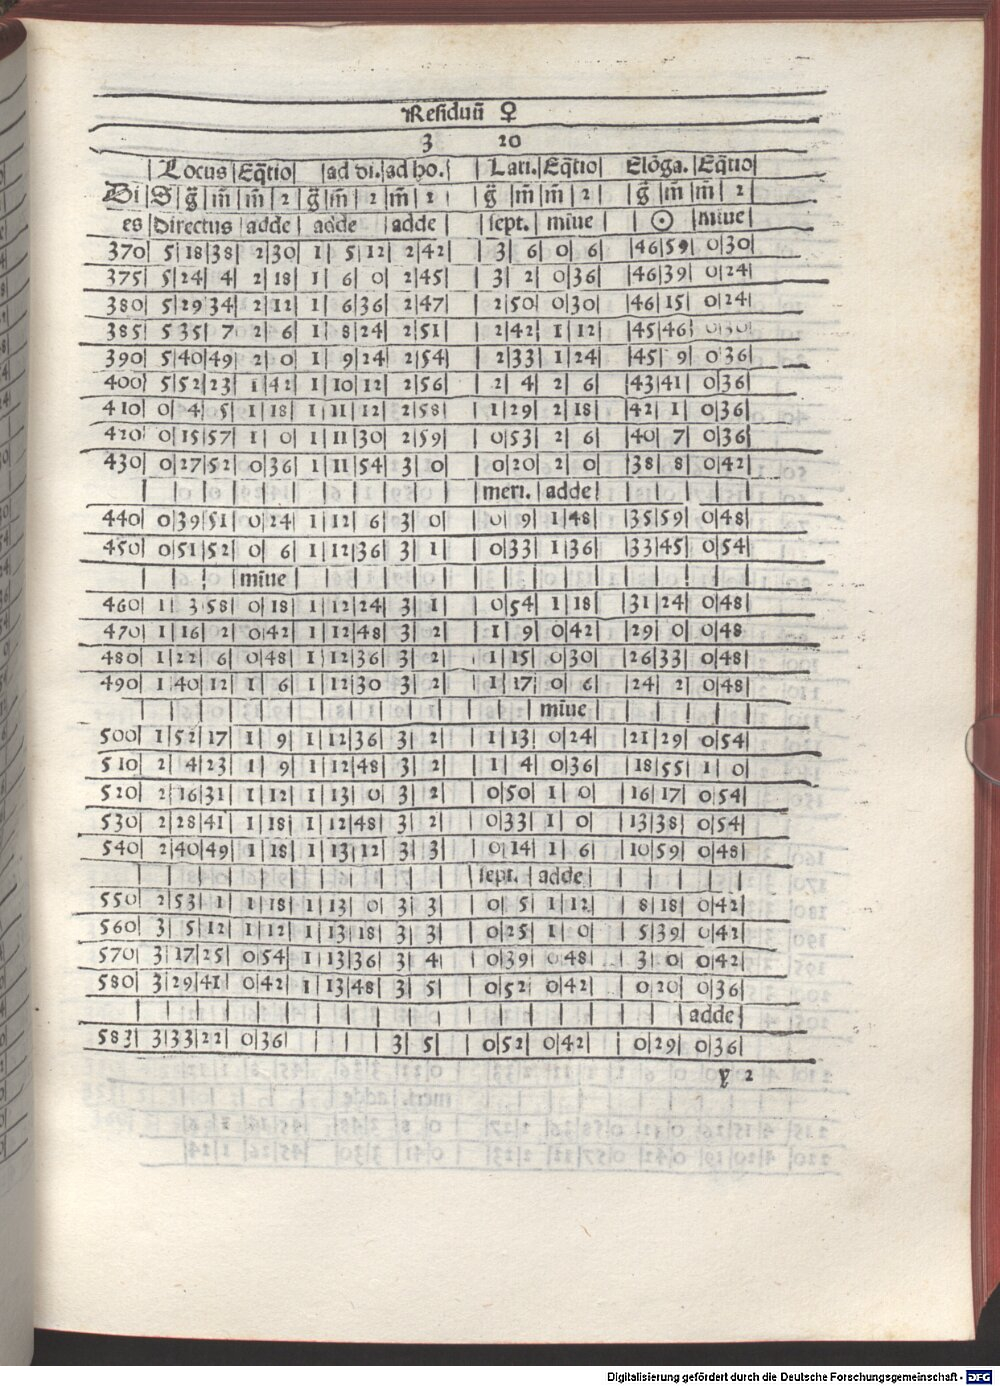 Residuũ ♀
3 20
Locus | Eq̃tio | ad di. | ad ho. | Lati. | Eq̃tio | Elõga. | Eq̃tio
Di | S | g̃ | m̃ | m̃ | 2 | g̃ | m̃ | 2 | m̃ | 2 | g̃ | m̃ | m̃ | 2 | g̃ | m̃ | m̃ | 2
es | Directus | adde | adde | adde | sept. | miũe | ☉ | miũe
370 | 5 | 18 | 38 | 2 | 30 | 1 | 5 | 12 | 2 | 42 | 3 | 6 | 0 | 6 | 46 | 59 | 0 | 30
375 | 5 | 24 | 4 | 2 | 18 | 1 | 6 | 0 | 2 | 45 | 3 | 2 | 0 | 36 | 46 | 39 | 0 | 24
380 | 5 | 29 | 34 | 2 | 12 | 1 | 6 | 36 | 2 | 47 | 2 | 50 | 0 | 30 | 46 | 15 | 0 | 24
385 | 5 | 35 | 7 | 2 | 6 | 1 | 8 | 24 | 2 | 51 | 2 | 42 | 1 | 12 | 45 | 46 | 0 | 30
390 | 5 | 40 | 49 | 2 | 0 | 1 | 9 | 24 | 2 | 54 | 2 | 33 | 1 | 24 | 45 | 9 | 0 | 36
400 | 5 | 52 | 23 | 1 | 42 | 1 | 10 | 12 | 2 | 56 | 2 | 4 | 2 | 6 | 43 | 41 | 0 | 36
410 | 0 | 4 | 5 | 1 | 18 | 1 | 11 | 12 | 2 | 58 | 1 | 29 | 2 | 18 | 42 | 1 | 0 | 36
420 | 0 | 15 | 57 | 1 | 0 | 1 | 11 | 30 | 2 | 59 | 0 | 53 | 2 | 6 | 40 | 7 | 0 | 36
430 | 0 | 27 | 52 | 0 | 36 | 1 | 11 | 54 | 3 | 0 | 0 | 20 | 2 | 0 | 38 | 8 | 0 | 42
meri. | adde
440 | 0 | 39 | 51 | 0 | 24 | 1 | 12 | 6 | 3 | 0 | 0 | 9 | 1 | 48 | 35 | 59 | 0 | 48
450 | 0 | 51 | 52 | 0 | 6 | 1 | 12 | 36 | 3 | 1 | 0 | 33 | 1 | 36 | 33 | 45 | 0 | 54
miũe
460 | 1 | 3 | 58 | 0 | 18 | 1 | 12 | 24 | 3 | 1 | 0 | 54 | 1 | 18 | 31 | 24 | 0 | 48
470 | 1 | 16 | 2 | 0 | 42 | 1 | 12 | 48 | 3 | 2 | 1 | 9 | 0 | 42 | 29 | 0 | 0 | 48
480 | 1 | 22 | 6 | 0 | 48 | 1 | 12 | 36 | 3 | 2 | 1 | 15 | 0 | 30 | 26 | 33 | 0 | 48
490 | 1 | 40 | 12 | 1 | 6 | 1 | 12 | 30 | 3 | 2 | 1 | 17 | 0 | 6 | 24 | 2 | 0 | 48
miũe
500 | 1 | 52 | 17 | 1 | 9 | 1 | 12 | 36 | 3 | 2 | 1 | 13 | 0 | 24 | 21 | 29 | 0 | 54
510 | 2 | 4 | 23 | 1 | 9 | 1 | 12 | 48 | 3 | 2 | 1 | 4 | 0 | 36 | 18 | 55 | 1 | 0
520 | 2 | 16 | 31 | 1 | 12 | 1 | 13 | 0 | 3 | 2 | 0 | 50 | 1 | 0 | 16 | 17 | 0 | 54
530 | 2 | 28 | 41 | 1 | 18 | 1 | 12 | 48 | 3 | 2 | 0 | 33 | 1 | 0 | 13 | 38 | 0 | 54
540 | 2 | 40 | 49 | 1 | 18 | 1 | 13 | 12 | 3 | 3 | 0 | 14 | 1 | 6 | 10 | 59 | 0 | 48
sept. | adde
550 | 2 | 53 | 1 | 1 | 18 | 1 | 13 | 0 | 3 | 3 | 0 | 5 | 1 | 12 | 8 | 18 | 0 | 42
560 | 3 | 5 | 12 | 1 | 12 | 1 | 13 | 18 | 3 | 3 | 0 | 25 | 1 | 0 | 5 | 39 | 0 | 42
570 | 3 | 17 | 25 | 0 | 54 | 1 | 13 | 36 | 3 | 4 | 0 | 39 | 0 | 48 | 3 | 0 | 0 | 42
580 | 3 | 29 | 41 | 0 | 42 | 1 | 13 | 48 | 3 | 5 | 0 | 52 | 0 | 42 | 0 | 20 | 0 | 36
adde
583 | 3 | 33 | 22 | 0 | 36 | 3 | 5 | 0 | 52 | 0 | 42 | 0 | 29 | 0 | 36
y 2
Digitalisierung gefördert durch die Deutsche Forschungsgemeinschaft - DFG